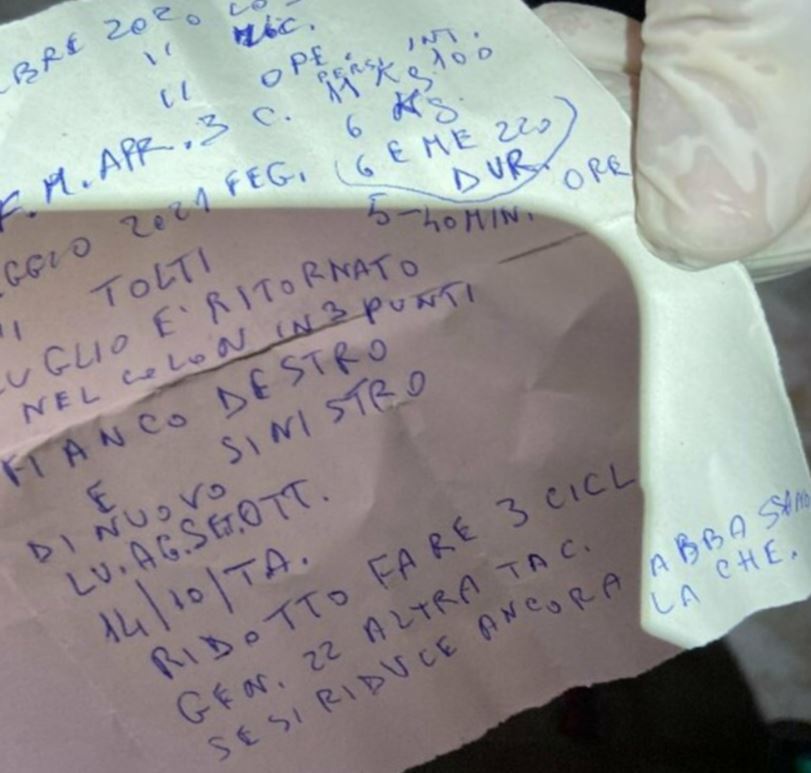 BRE 2020 CO
" MIC.
" OPE. INT.
PERS. 11 KS 100
F.M. APR. 3 C. 6 KS.
GGIO 2021 FEG. (6 E ME 220)
DUR. OPE
TOLTI 5-40 MIN.
UGLIO E' RITORNATO
NEL COLON IN 3 PUNTI
FIANCO DESTRO
E SINISTRO
DI NUOVO
LU.AG.SET.OTT.
14/10/TA.
RIDOTTO FARE 3 CICL
GEN. 22 ALTRA TAC.
SE SI RIDUCE ANCORA ABBASSANO
LA CHE.